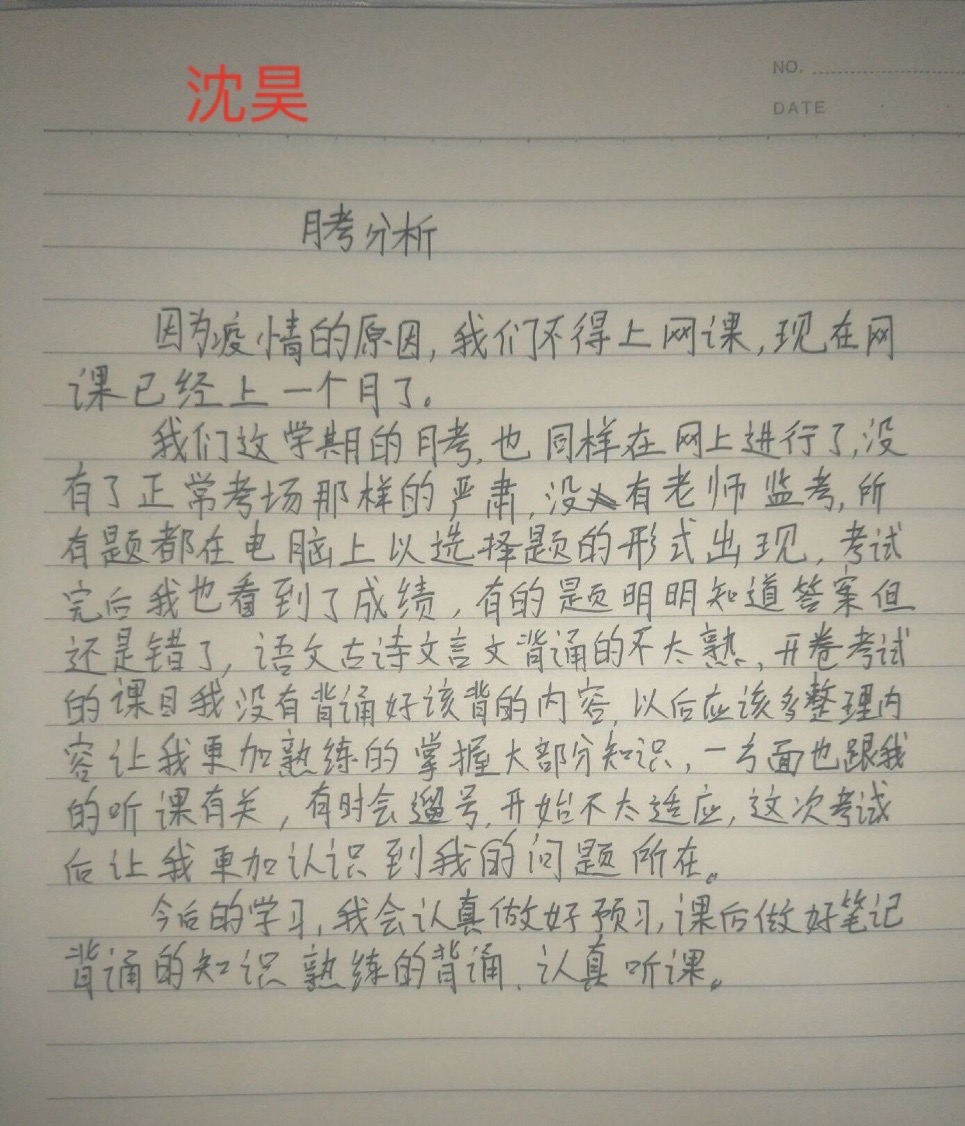 沈昊
NO.
DATE
月考分析
因为疫情的原因,我们不得上网课,现在网
课已经上一个月了。
我们这学期的月考,也同样在网上进行了,没
有了正常考场那样的严肃,没有老师监考,所
有题都在电脑上以选择题的形式出现,考试
完后我也看到了成绩,有的题明明知道答案但
还是错了,语文古诗文言文背诵的不太熟,开卷考试
的课目我没有背诵好该背的内容,以后应该多整理内
容让我更加熟练的掌握大部分知识,一方面也跟我
的听课有关,有时会遛号,开始不太适应,这次考试
后让我更加认识到我的问题所在。
今后的学习,我会认真做好预习,课后做好笔记
背诵的知识熟练的背诵、认真听课。